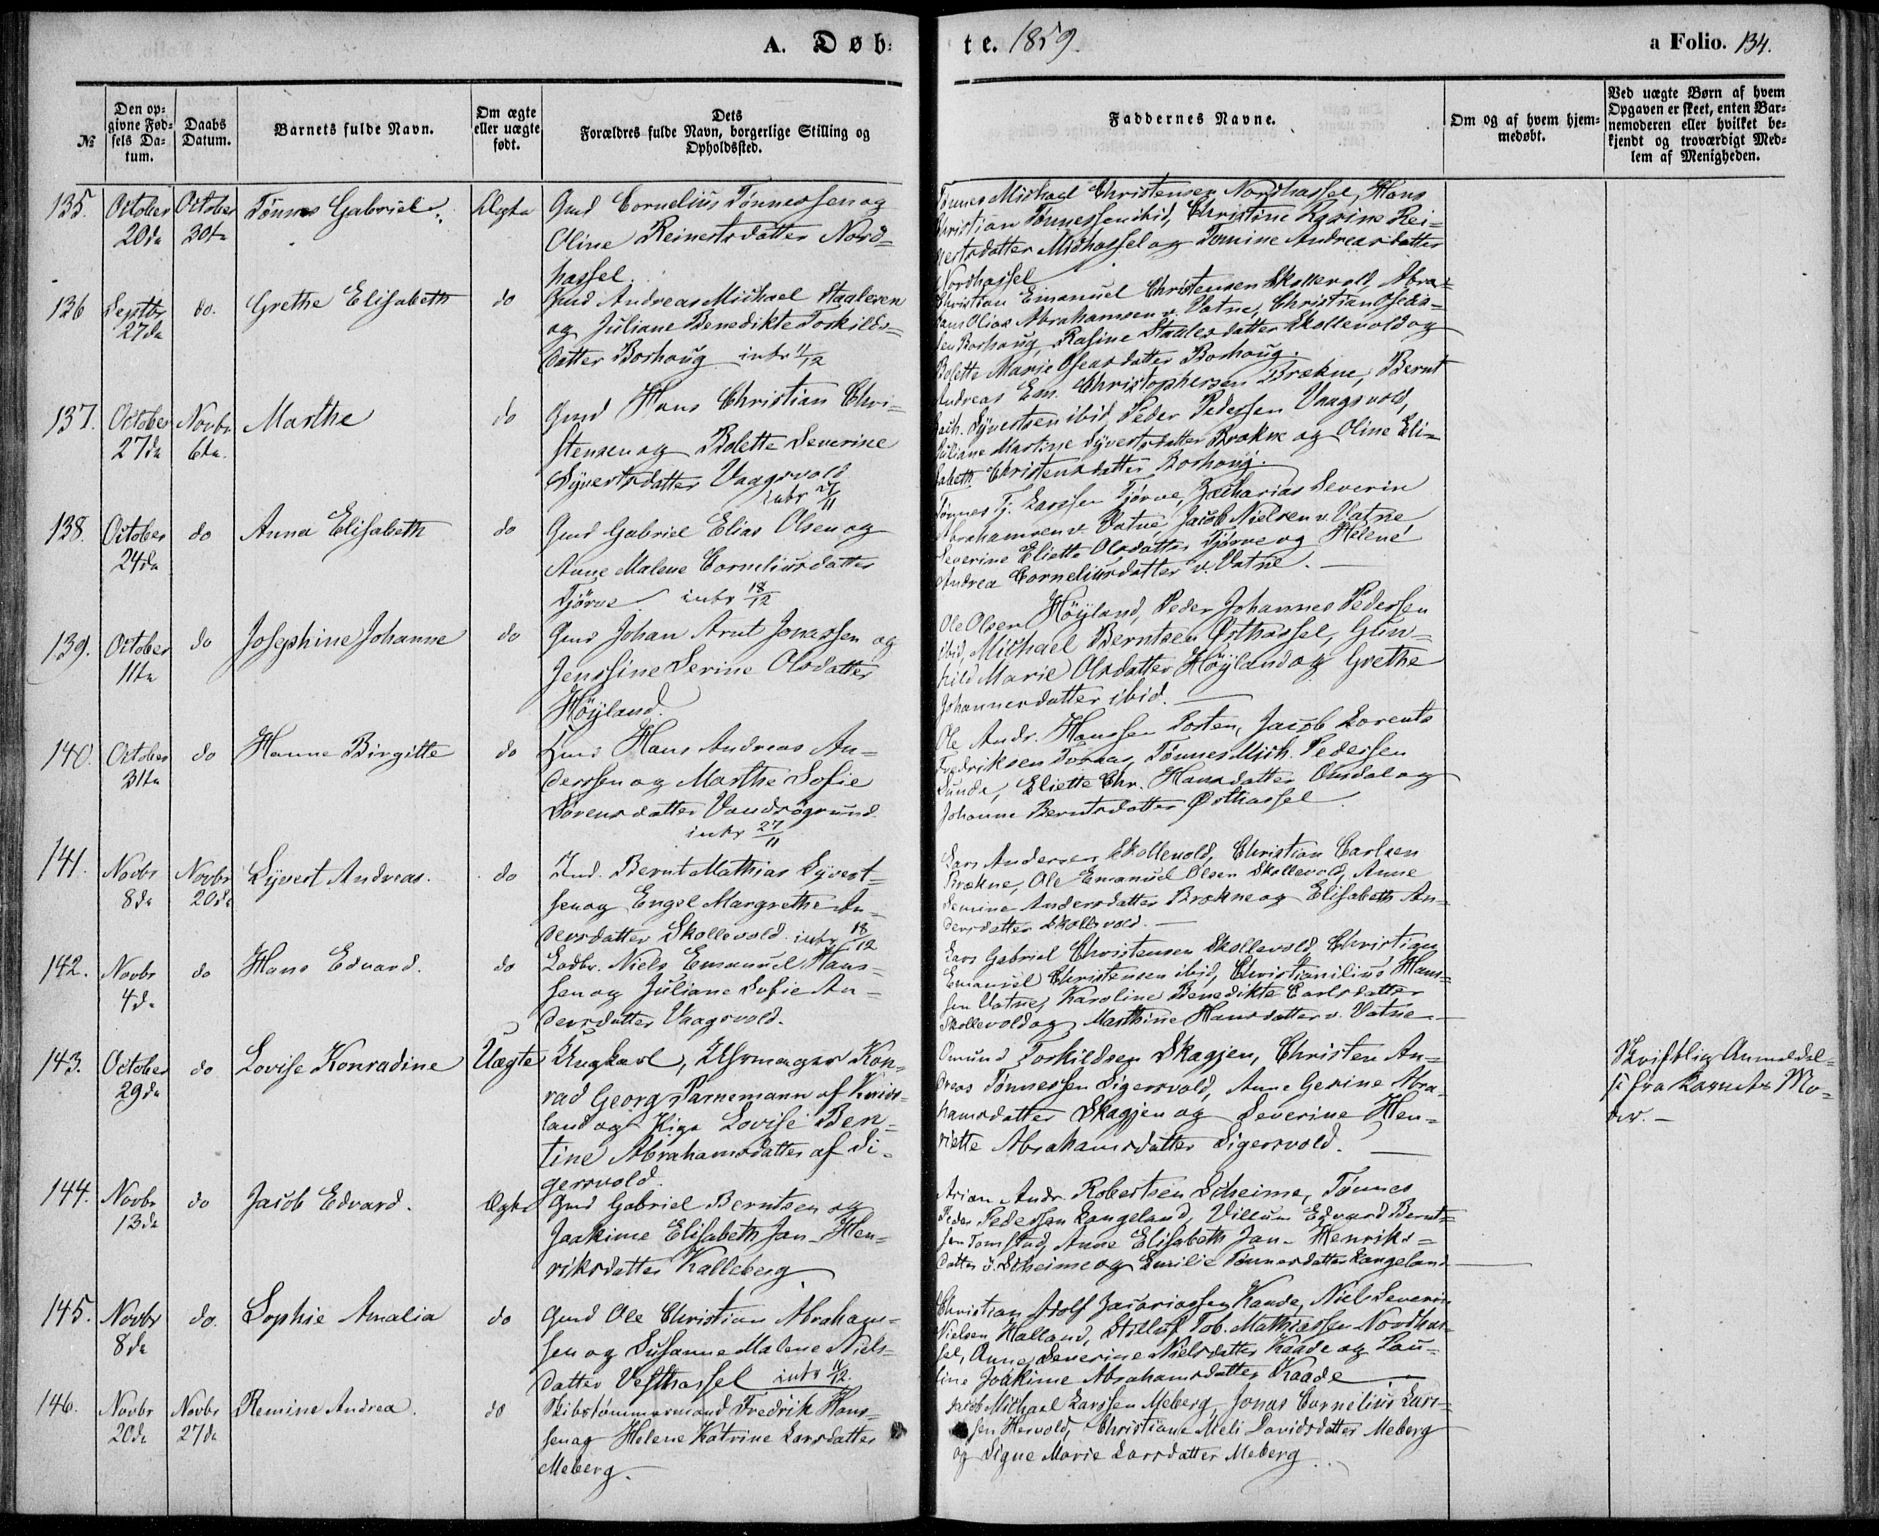 A. Døb=
te. 1859.
a Folio. 134.
№
Den op=
givne Fød=
sels Da=
tum.
Daabs
Datum.
Barnets fulde Navn.
Om ægte
eller uægte
født.
Dets
Forældres fulde Navn, borgerlige Stilling og
Opholdssted.
Faddernes Navne.
Om og af hvem hjem=
medøbt.
Ved uægte Børn af hvem
Opgaven er skeet, enten Bar=
nemoderen eller hvilket be=
kjendt og troværdigt Med=
lem af Menigheden.
135. October 20de October 30te Tønnes Gabriel Ægte
Gmd Cornelius Tønnessen og
Oline Reinertsdatter Nord=
hassel.
Tønnes Michael Christensen Nordhassel, Hans
Christian Tønnessen ibid, Christine Karine Rei=
nertsdatter Midhassel og Tomine Andreasdatter
Nordhassel
136 Septbr 27de do. Grethe Elisabeth do
Gmd Andreas Michael Staalesen
og Juliane Benedikte Torkilds=
datter Borhoug intr 11/12
Christian Emanuel Christensen Skollevold, Abra=
hams Olias Abrahamsen v. Vatne, Christian Oseas=
sen Borhoug, Rasine Staalesdatter Skollevold og
Bolette Marie Oseasdatter Borhoug.
137. October 27de Novbr 6te. Marthe do
Gmd Hans Christian Chri=
stensen og Bolette Severine
Syvertsdatter Vaagsvold
intr 27/11
Andreas Em. Christophersen Brækne, Bernt
Math. Syvertsen ibid, Peder Pedersen Vaagsvold,
Juliane Martine Syvertsdatter Brækne og Oline Eli=
sabeth Christensdatter Borhoug.
138. October 24de do Anna Elisabeth do
Gmd Gabriel Elias Olsen og
Anne Malene Corneliusdatter
Tjørve intr 18/12
Tønnes T. Larssen Tjørve, Zacharias Severin
Abrahamsen v. Vatne, Jacob Nielsen v. Vatne
Severine Eliette Olsdatter Tjørve og Helene
Andrea Corneliusdatter v. Vatne.
139. October 11te do Josephine Johanne do
Gmd Johan Arnt Jonassen og
Jenssine Serine Olsdatter
Höyland.
Ole Olsen Höyland, Peder Johannes Pedersen
ibid, Michael Berntsen Østhassel, Gun=
hild Marie Olsdatter Höyland og Grethe
Johannesdatter ibid.
140. October 31te do Hanne Birgitte do
Hans Andreas An=
derssen og Marthe Sofie
Sørensdatter Vandsøgrund
intr 27/11
Ole Andr. Hanssen Torten, Jacob Lorents
Fredriksen, Tønnes Mich. Pedersen
Lunde, Eliette Chr. Hansdatter Omdal og
Johanne Berntsdatter Østhassel.
141. Novbr 8de Novbr 20de Syvert Andreas. do
Ind. Bernt Mathias Syvert=
sen og Engel Margrethe An=
dersdatter Skollevold intr 18/12
Lars Andersen Skollevold, Christian Carlsen
Brækne, Ole Emanuel Olsen Skollevold, Anne
Semine Andersdatter Brækne og Elisabeth An=
dersdatter Skollevold.
142. Novbr 4de do Hans Edvard. do
Niels Emanuel Hans=
sen og Juliane Sofie An=
dersdatter Vaagsvold.
Lars Gabriel Christensen Skollevold, Christian
Emanuel Christensen ibid, Christianilius Hans=
sen Vatne, Karoline Benedikte Carlsdatter
Skollevold og Marthine Hansdatter v. Vatne
143. October 29de do Lovise Konradine Uægte
Ungkarl, Uhrmager Kon=
rad Georg Parnemann af Kvins=
land og Pige Lovise Ben=
tine Abrahamsdatter af Si=
gersvold.
Omund Torkildsen Skagjen, Christen An=
dreas Tønnessen Sigersvold, Anne Gesine Abra=
hamsdatter Skagjen og Severine Hen=
riette Abrahamsdatter Sigersvold.
Skriftlig Anmeldel=
se fra Barnets Mo=
der.
144. Novbr 13de do Jacob Edvard. Ægte
Gmd Gabriel Berntsen og
Joakime Elisabeth Jan-Hen=
riksdatter Kalleberg
Arian Andr. Robertsen Scheime, Tønnes
Peder Pedersen Langeland, Villum Edvard Bernt=
sen Tomstad, Anne Elisabeth Jan-Henriks=
datter v. Scheime og Emilie Tønnesdatter Langeland
145. Novbr 8de do. Sophie Amalia do
Gmd Ole Christian Abraham=
sen og Susanne Malene Niels=
datter Vesthassel intr 11/12.
Christian Adolf Zacariassen Kaade, Niels Severin
Nielsen Halland, Tob. Mathiassen Nordhas=
sel, Anne Severine Nielsdatter Kaade og Pau=
line Joakime Abrahamsdatter Kaade
146. Novbr 20de Novbr 27de Remine Andrea. do
Skibstømmermand Fredrik Hans=
sen og Helene Katrine Larsdatter
Meberg.
Jacob Michael Larssen Meberg, Jonas Cornelius Lars=
sen Hervold, Christiane Meli Davidsdatter Meberg
og Signe Marie Larsdatter Meberg